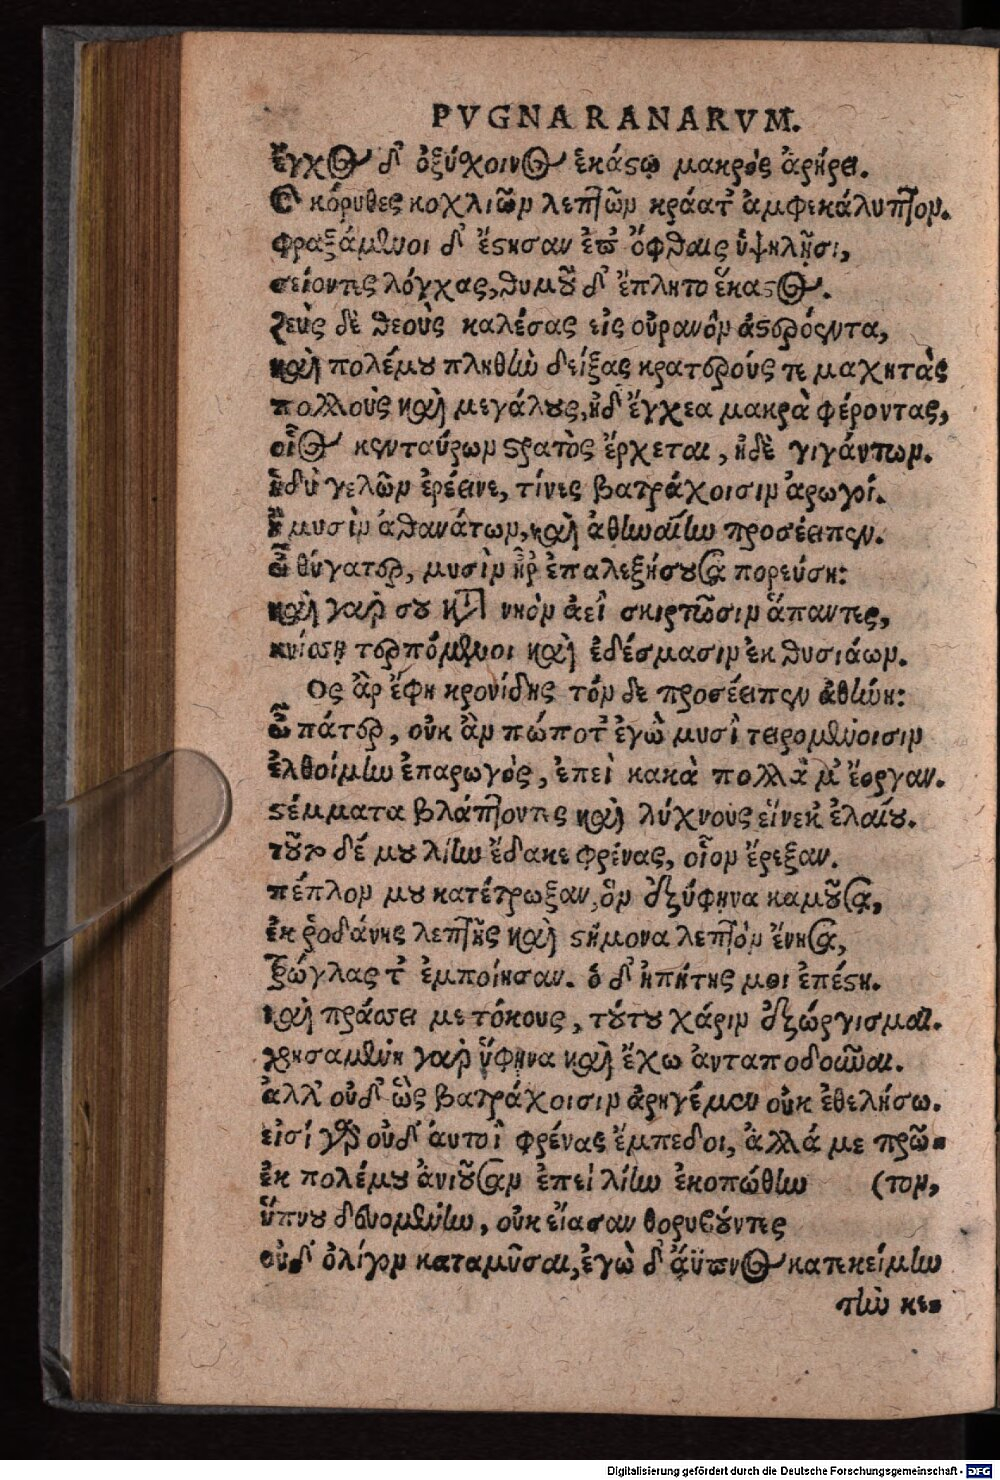 PVGNA RANARVM.
ἔγχος δ' ὀξύχοινος ἑκάστῳ μακρὸς ἀρήρει.
Καὶ κόρυθες κοχλιῶν λεπτῶν κράατ' ἀμφεκάλυπτον.
φραξάμενοι δ' ἔστησαν ἐπ' ὄχθαις ὑψηλῇσι,
σείοντες λόγχας, θυμοῦ δ' ἔπλητο ἕκαστος.
Ζεὺς δὲ θεοὺς καλέσας εἰς οὐρανὸν ἀστερόεντα,
καὶ πολέμου πληθὺν δείξας κρατερούς τε μαχητὰς
πολλοὺς καὶ μεγάλους, ἠδ' ἔγχεα μακρὰ φέροντας,
οἷος κενταύρων στρατὸς ἔρχεται, ἠδὲ γιγάντων.
ἡδὺ γελῶν ἐρέεινε, τίνες βατράχοισιν ἀρωγοί.
ἢ μυσὶν ἀθανάτων, καὶ ἀθηναίην προσέειπεν.
ὦ θύγατερ, μυσὶν ἦρ' ἐπαλεξήσουσα πορεύσῃ:
καὶ γὰρ σου κατὰ νηὸν ἀεὶ σκιρτῶσιν ἅπαντες,
κνίσσῃ τερπόμενοι καὶ ἐδέσμασιν ἐκ θυσιάων.
Ὣς ἂρ ἔφη κρονίδης τόν δε προσέειπεν ἀθήνη:
ὦ πάτερ, οὐκ ἂν πώποτ' ἐγὼ μυσὶ τειρομένοισιν
ἐλθοίμην ἐπαρωγὸς, ἐπεὶ κακὰ πολλά μ' ἔοργαν.
στέμματα βλάπτοντες καὶ λύχνους εἵνεκ' ἐλαίου.
τοῦτο δέ μου λίην ἔδακε φρένας, οἷον ἔρεξαν.
πέπλον μου κατέτρωξαν, ὃν ἐξύφηνα καμοῦσα,
ἐκ ῥοδάνης λεπτῆς καὶ στήμονα λεπτὸν ἔνησα,
τρώγλας τ' ἐμποίησαν. ὁ δ' ἠπήτης μοι ἐπέστη.
καὶ πράσσει με τόκους, τούτου χάριν ἐξώργισμαι.
χρησαμένη γὰρ ὕφηνα καὶ ἔχω ἀνταποδοῦναι.
ἀλλ' οὐδ' ὣς βατράχοισιν ἀρηγέμεν οὐκ ἐθελήσω.
εἰσί γὰρ οὐδ' αὐτοὶ φρένας ἔμπεδοι, ἀλλά με πρῶ-
ἐκ πολέμου ἀνιοῦσαν ἐπεὶ λίην ἐκοπώθην (τον,
ὕπνου δευομένην, οὐκ εἴασαν θορυβοῦντες
οὐδ' ὀλίγον καταμῦσαι, ἐγὼ δ' ἄϋπνος κατεκείμην
τὴν κε-
Digitalisierung gefördert durch die Deutsche Forschungsgemeinschaft - DFG